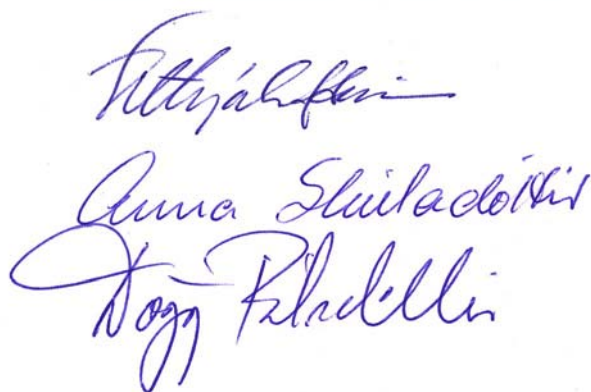 Anna Skúladóttir
Dögg Pálsdóttir